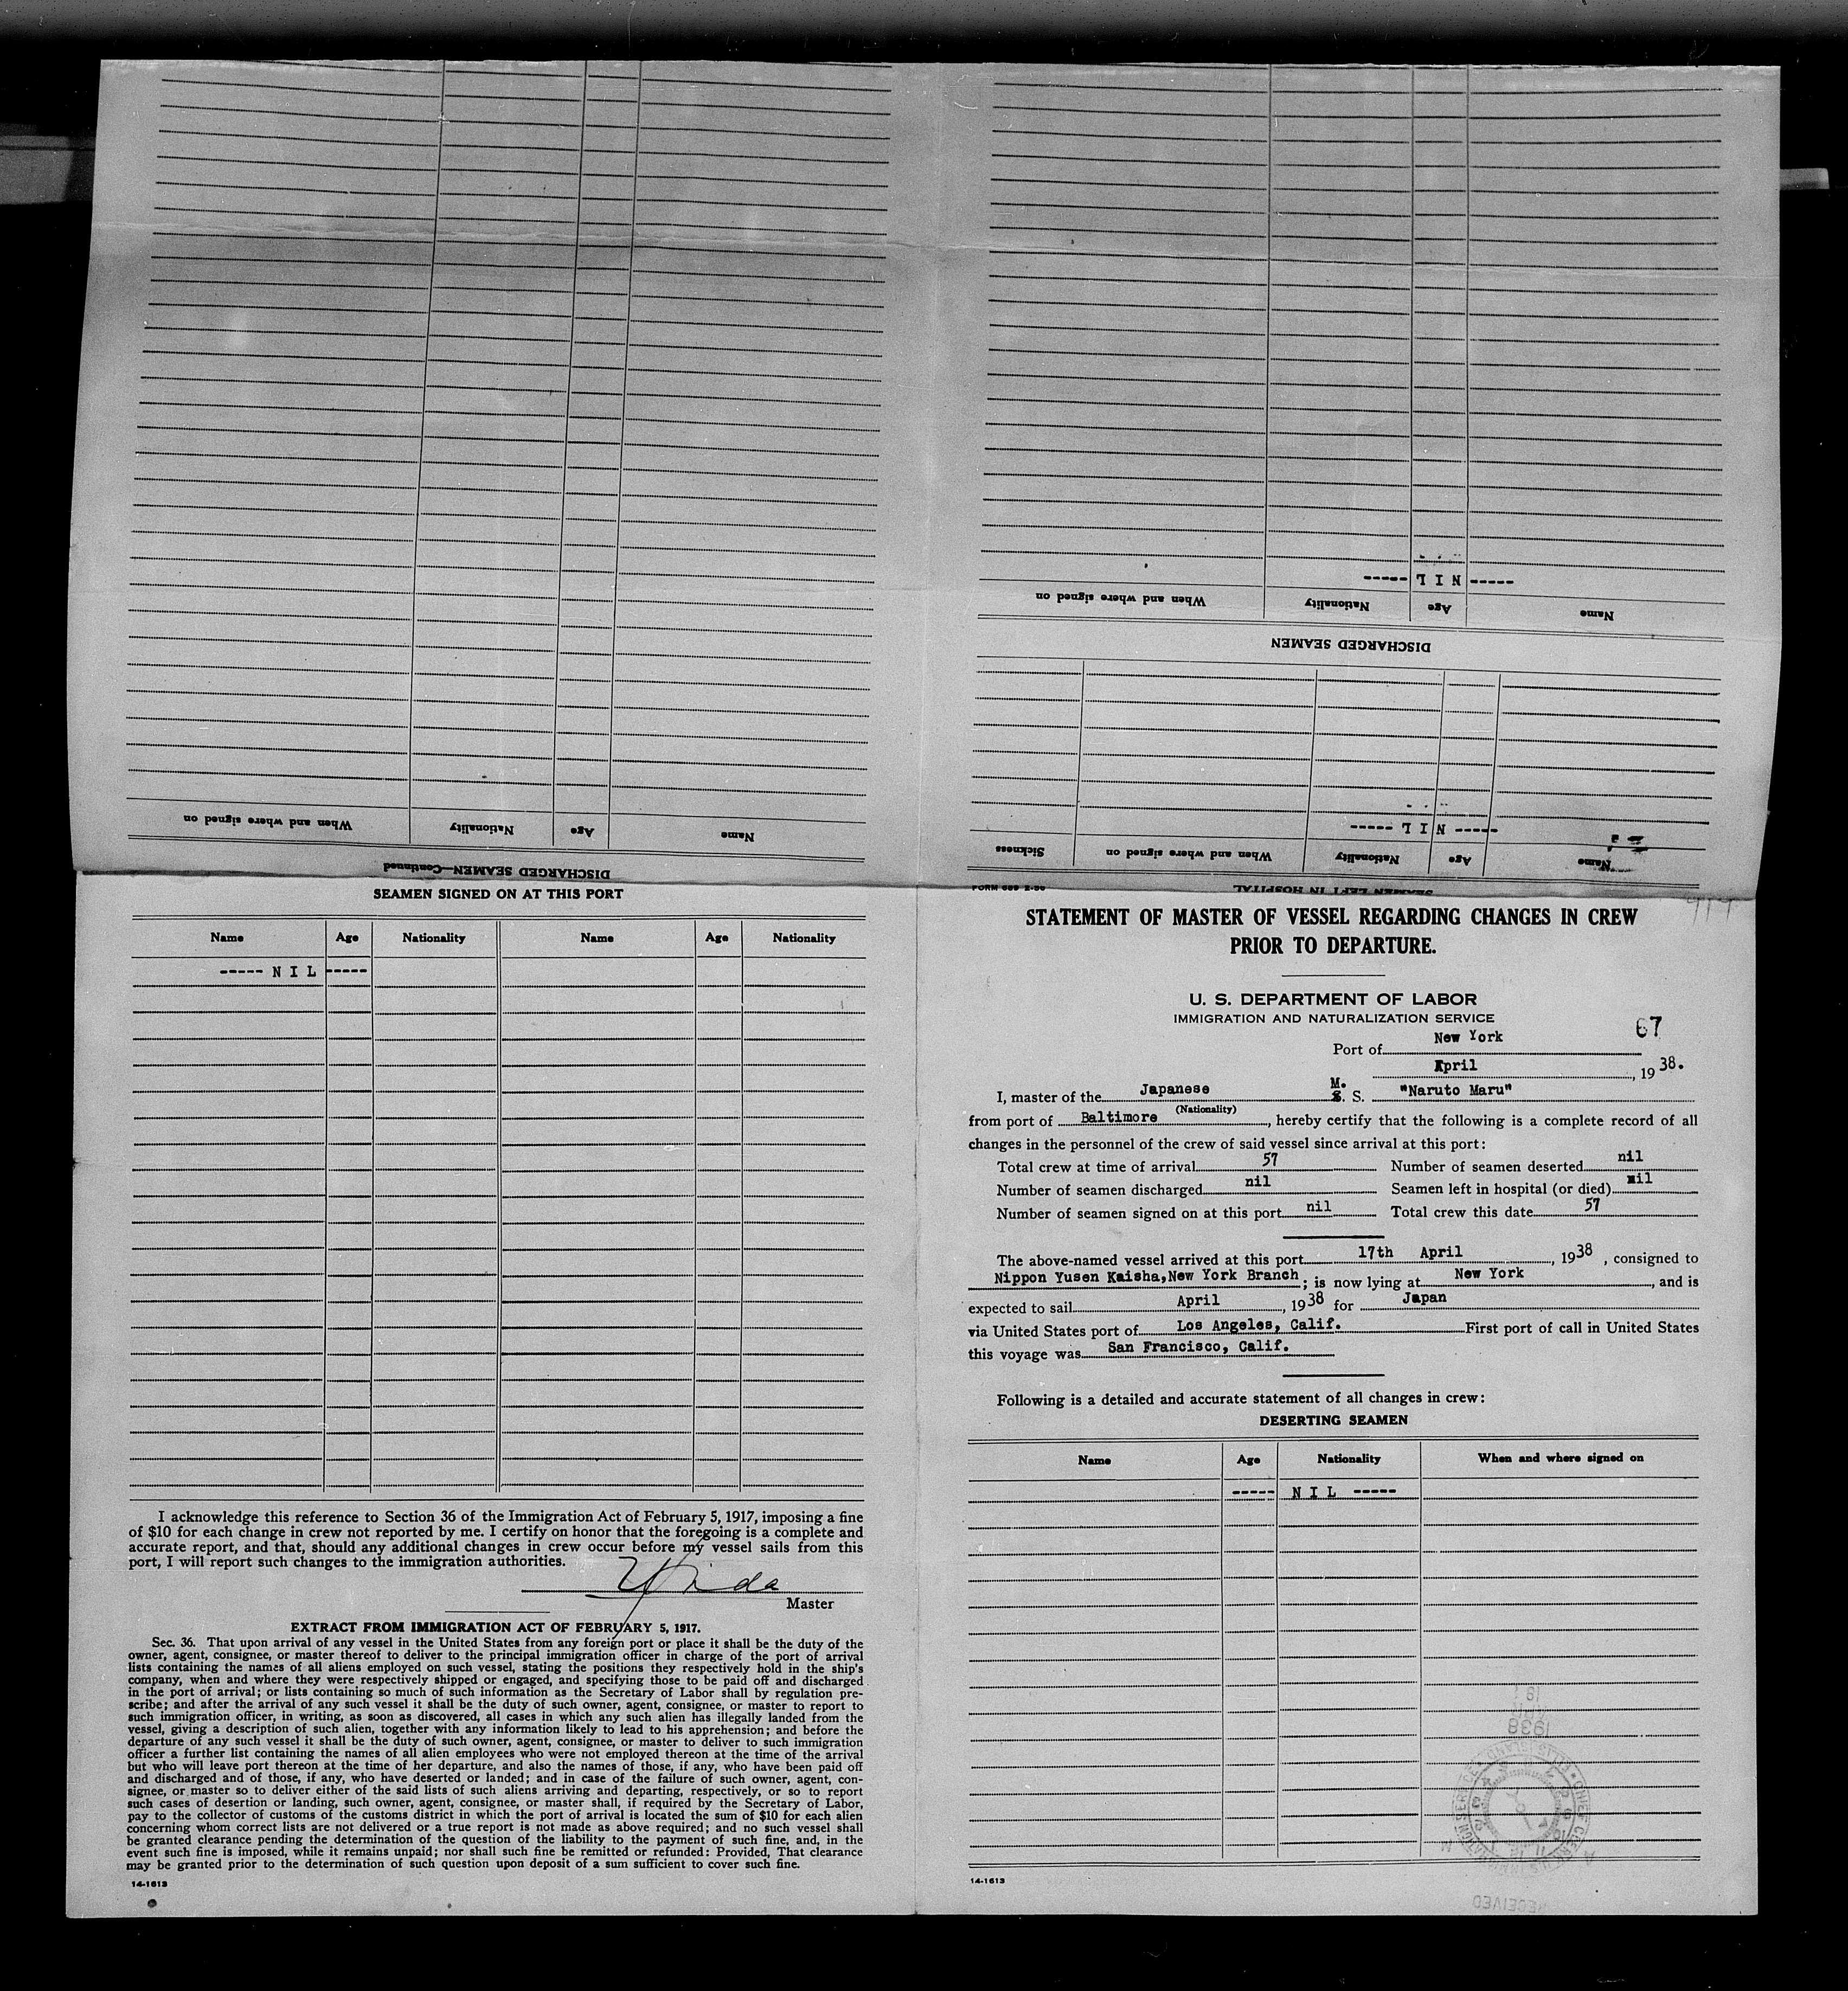 FORM 689 2-36
STATEMENT OF MASTER OF VESSEL REGARDING CHANGES IN CREW
PRIOR TO DEPARTURE.
U. S. DEPARTMENT OF LABOR
IMMIGRATION AND NATURALIZATION SERVICE
67
Port of New York
April, 1938.
I, master of the Japanese M. S. "Naruto Maru"
(Nationality)
from port of Baltimore, hereby certify that the following is a complete record of all
changes in the personnel of the crew of said vessel since arrival at this port:
Total crew at time of arrival 57 Number of seamen deserted nil
Number of seamen discharged nil Seamen left in hospital (or died) nil
Number of seamen signed on at this port nil Total crew this date 57
The above-named vessel arrived at this port 17th April, 1938, consigned to
Nippon Yusen Kaisha, New York Branch; is now lying at New York, and is
expected to sail April, 1938 for Japan
via United States port of Los Angeles, Calif. First port of call in United States
this voyage was San Francisco, Calif.
Following is a detailed and accurate statement of all changes in crew:
DESERTING SEAMEN
Name Age Nationality When and where signed on
----- N I L -----
14-1613
RECEIVED
1938
SEAMEN LEFT IN HOSPITAL
Name Age Nationality When and where signed on Sickness
----- N I L -----
DISCHARGED SEAMEN
Name Age Nationality When and where signed on
----- N I L -----
DISCHARGED SEAMEN—Continued
Name Age Nationality When and where signed on
SEAMEN SIGNED ON AT THIS PORT
Name Age Nationality Name Age Nationality
----- N I L -----
I acknowledge this reference to Section 36 of the Immigration Act of February 5, 1917, imposing a fine
of $10 for each change in crew not reported by me. I certify on honor that the foregoing is a complete and
accurate report, and that, should any additional changes in crew occur before my vessel sails from this
port, I will report such changes to the immigration authorities.
Master
EXTRACT FROM IMMIGRATION ACT OF FEBRUARY 5, 1917.
Sec. 36. That upon arrival of any vessel in the United States from any foreign port or place it shall be the duty of the
owner, agent, consignee, or master thereof to deliver to the principal immigration officer in charge of the port of arrival
lists containing the names of all aliens employed on such vessel, stating the positions they respectively hold in the ship's
company, when and where they were respectively shipped or engaged, and specifying those to be paid off and discharged
in the port of arrival; or lists containing so much of such information as the Secretary of Labor shall by regulation pre-
scribe; and after the arrival of any such vessel it shall be the duty of such owner, agent, consignee, or master to report to
such immigration officer, in writing, as soon as discovered, all cases in which any such alien has illegally landed from the
vessel, giving a description of such alien, together with any information likely to lead to his apprehension; and before the
departure of any such vessel it shall be the duty of such owner, agent, consignee, or master to deliver to such immigration
officer a further list containing the names of all alien employees who were not employed thereon at the time of the arrival
but who will leave port thereon at the time of her departure, and also the names of those, if any, who have been paid off
and discharged and of those, if any, who have deserted or landed; and in case of the failure of such owner, agent, con-
signee, or master so to deliver either of the said lists of such aliens arriving and departing, respectively, or so to report
such cases of desertion or landing, such owner, agent, consignee, or master shall, if required by the Secretary of Labor,
pay to the collector of customs of the customs district in which the port of arrival is located the sum of $10 for each alien
concerning whom correct lists are not delivered or a true report is not made as above required; and no such vessel shall
be granted clearance pending the determination of the question of the liability to the payment of such fine, and, in the
event such fine is imposed, while it remains unpaid; nor shall such fine be remitted or refunded: Provided, That clearance
may be granted prior to the determination of such question upon deposit of a sum sufficient to cover such fine.
14-1613